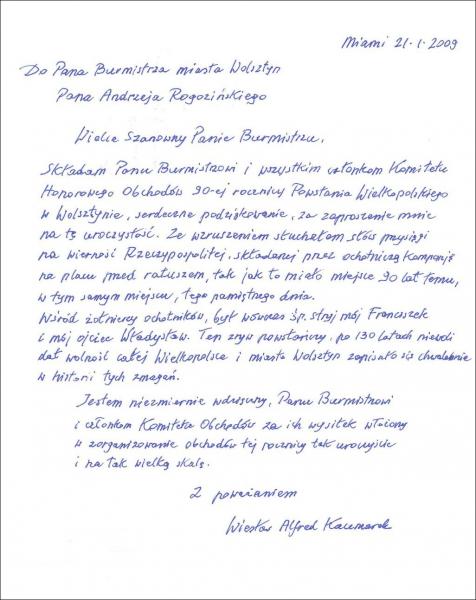 Miami 21.1.2009
Do Pana Burmistrza miasta Wolsztyn
Pana Andrzeja Rogozińskiego
Wielce Szanowny Panie Burmistrzu,
Składam Panu Burmistrzowi i wszystkim członkom Komitetu
Honorowego Obchodów 90-ej rocznicy Powstania Wielkopolskiego
w Wolsztynie, serdeczne podziękowanie, za zaproszenie mnie
na tę uroczystość. Ze wzruszeniem słuchałem słów przysięgi
na wierność Rzeczypospolitej, składanej przez ochotniczą kompanję
na placu przed ratuszem, tak jak to miało miejsce 90 lat temu,
w tym samym miejscu, tego pamiętnego dnia.
Wśród żołnierzy ochotników, był wówczas śp. stryj mój Franciszek
i mój ojciec Władysław. Ten zryw powstańczy, po 130 latach niewoli
dał wolność całej Wielkopolsce i miasto Wolsztyn zapisało się chwalebnie
w historii tych zmagań.
Jestem niezmiernie wdzięczny, Panu Burmistrzowi
i członkom Komitetu Obchodów za ich wysiłek włożony
w zorganizowanie obchodów tej rocznicy tak uroczyście
i na tak wielką skalę.
Z poważaniem
Wiesław Alfred Kaczmarek